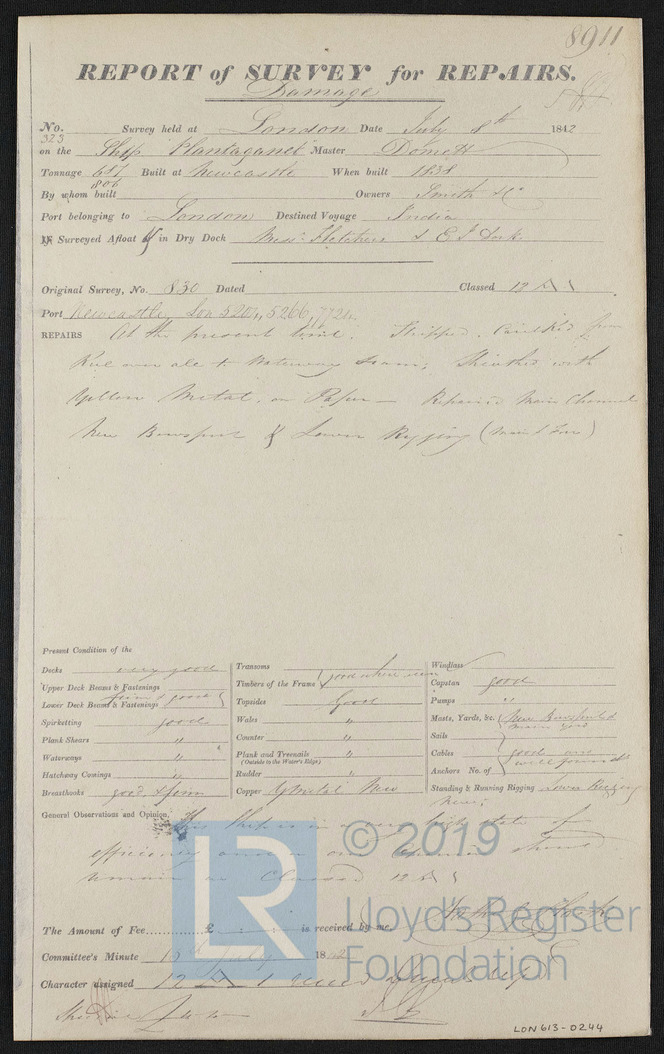 8911
REPORT of SURVEY for REPAIRS.
Damage
No. 323 Survey held at London Date July 8th 1842
on the Ship Plantaganet Master Domett
Tonnage 617 806 Built at Newcastle When built 1838
By whom built Owners Smith & Co
Port belonging to London Destined Voyage India
If Surveyed Afloat or in Dry Dock Messrs Fletchers & E I Dock
Original Survey, No. 830 Dated Classed 12 A 1
Port Newcastle, Lon 5204, 5266, 7724
REPAIRS At the present time. Stripped, Caulked from
Keel own ale to Waterway Seams; Sheathed with
Yellow Metal, on Paper — Repaired Main Channel
New Bowsprit & Lower Rigging (Main & Fore)
Present Condition of the
Decks very good
Upper Deck Beams & Fastenings
Lower Deck Beams & Fastenings firm & good
Spirketting good
Plank Shears "
Waterways "
Hatchway Comings "
Breasthooks good & firm
Transoms
Timbers of the Frame good where seen
Topsides Good
Wales "
Counter "
Plank and Treenails "
(Outside to the Water's Edge)
Rudder "
Copper Y Metal New
Windlass
Capstan good
Pumps "
Masts, Yards, &c. New Bowsprit &
main yard
Sails
Cables good and
Anchors No. of well found
Standing & Running Rigging Lower Rigging
New;
General Observations and Opinion, This Ship is in a very high state of
efficiency and in our Opinion should
remain as Classed 12 A 1
The Amount of Fee £ is received by me,
Committee's Minute 12th July 1842
Character assigned 12 A 1
LR
© 2019
Lloyd's Register
Foundation
LON613-0244